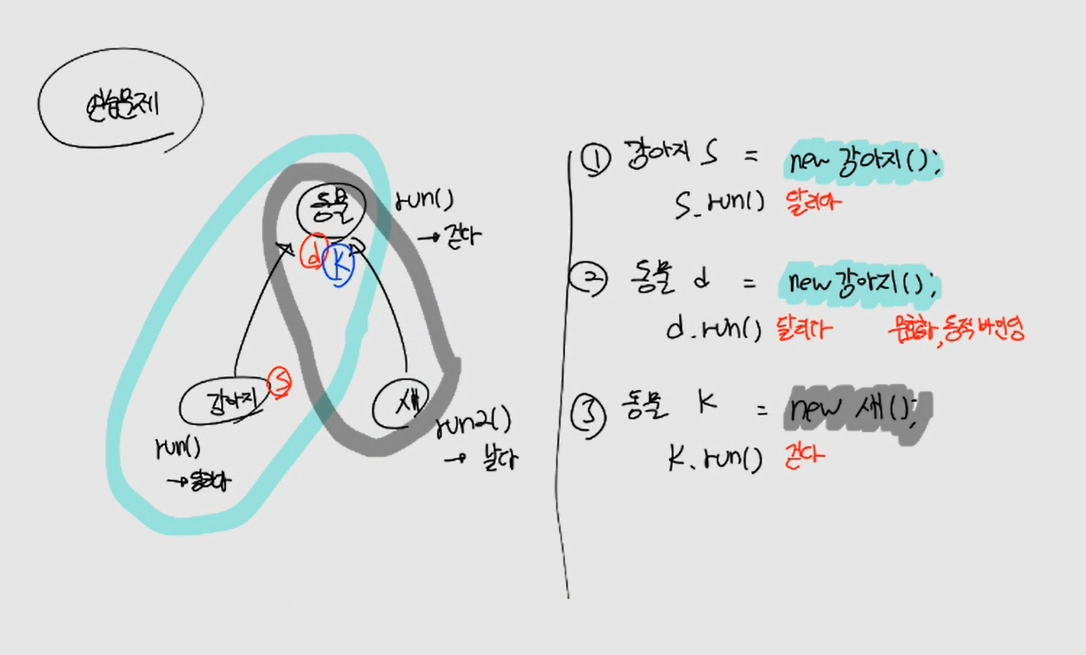 연습문제
동물
run()
→ 걷다
d
K
강아지
S
run()
→ 달리다
새
run2()
→ 날다
① 강아지 S = new 강아지();
S.run() 달리다
② 동물 d = new 강아지();
d.run() 달리다 무효화, 동적 바인딩
③ 동물 K = new 새();
K.run() 걷다